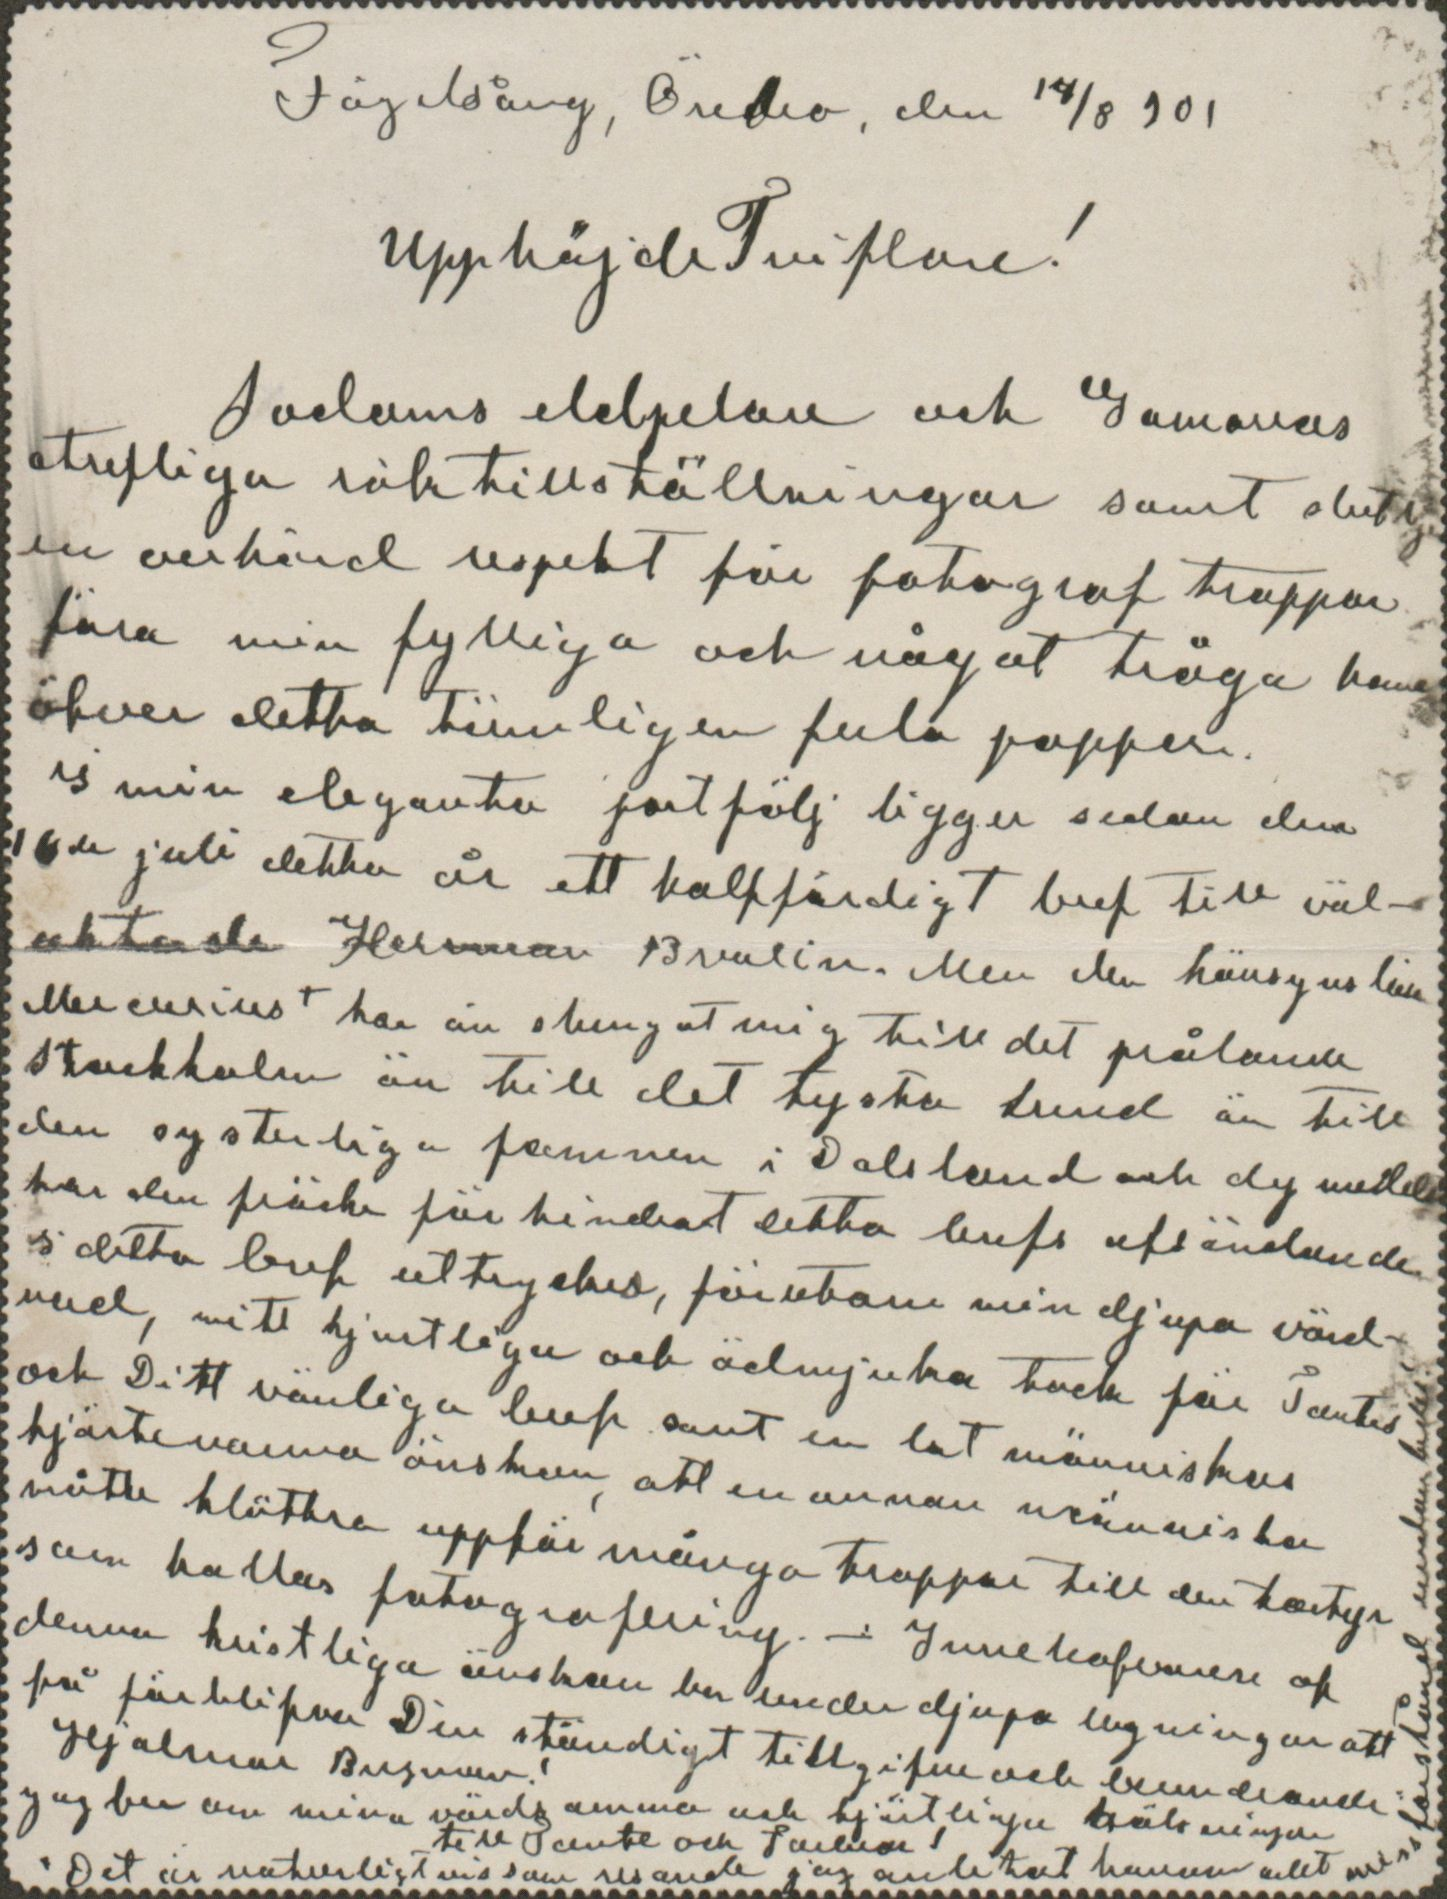 Fågelsång, Örebro, den 14/8 901
Upphöjde Tviflare!
Sodoms eldpelare och Gomorras
otrefliga röktillställningar samt slutl.
en oerhörd respekt för fotograftrappor
föra min fylliga och något tröga hand
öfver detta tämligen fula papper.
I min eleganta portfölj ligger sedan den
16de juli detta år ett halffärdigt bref till väl-
aktade Herman Brulin. Men den hänsynslöse
Mercurius† har än slungat mig till det prålande
Stockholm än till det tysta Lund än till
den systerliga famnen i Dalsland och dymedels
har den fräcke förhindrat detta brefs afsändande.
I detta bref uttryckes, förutom min djupa vörd-
nad, mitt hjertliga och ödmjuka tack för Tantes
och Ditt vänliga bref samt en lat människas
hjärtevarma önskan, att en annan människa
måtte klättra uppför många trappor till den tortyr
som kallas fotografering. — Innehafvaren af
denna kristliga önskan ber under djupa bugningar att
få förblifva Din ständigt tillgifne och beundrande
Hjalmar Bergman!
Jag ber om mina vördsamma och hjärtliga hälsningar
till Tante och Farbror!
† Det är naturligtvis som resande jag anlitat honom allt
missförstånd undanbedes!